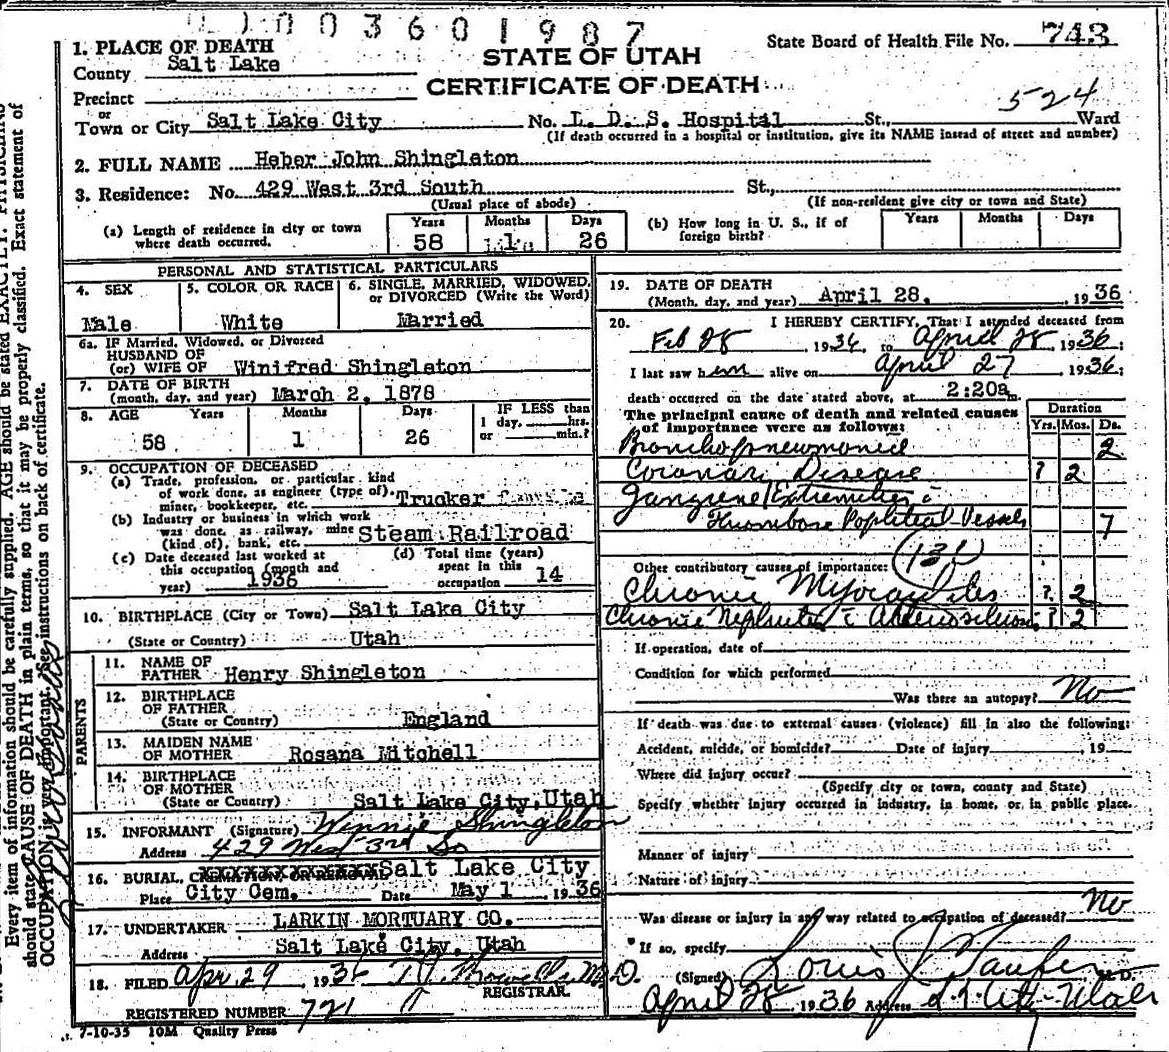 1003601987
State Board of Health File No. 743
STATE OF UTAH
CERTIFICATE OF DEATH
524
1. PLACE OF DEATH
County Salt Lake
Precinct
or
Town or City Salt Lake City No. L. D. S. Hospital St., Ward
(If death occurred in a hospital or institution, give its NAME insead of street and number)
2. FULL NAME Heber John Shingleton
3. Residence: No. 429 West 3rd South St.,
(Usual place of abode) (If non-resident give city or town and State)
(a) Length of residence in city or town where death occurred. Years 58 Months 1 Days 26
(b) How long in U. S., if of foreign birth? Years Months Days
PERSONAL AND STATISTICAL PARTICULARS
4. SEX Male
5. COLOR OR RACE White
6. SINGLE, MARRIED, WIDOWED, or DIVORCED (Write the Word) Married
6a. IF Married, Widowed, or Divorced
HUSBAND OF
(or) WIFE OF Winifred Shingleton
7. DATE OF BIRTH
(month, day, and year) March 2, 1878
8. AGE Years 58 Months 1 Days 26
IF LESS than
1 day, hrs.
or min.?
9. OCCUPATION OF DECEASED
(a) Trade, profession, or particular kind
of work done, as engineer (type of),
miner, bookkeeper, etc. Trucker
(b) Industry or business in which work
was done, as railway, mine
(kind of), bank, etc. Steam Railroad
(c) Date deceased last worked at
this occupation (month and
year) 1936
(d) Total time (years)
spent in this
occupation 14
10. BIRTHPLACE (City or Town) Salt Lake City
(State or Country) Utah
PARENTS
11. NAME OF
FATHER Henry Shingleton
12. BIRTHPLACE
OF FATHER
(State or Country) England
13. MAIDEN NAME
OF MOTHER Rosana Mitchell
14. BIRTHPLACE
OF MOTHER
(State or Country) Salt Lake City, Utah
15. INFORMANT (Signature) Winnie Shingleton
Address 429 West 3rd So
16. BURIAL, CREMATION OR REMOVAL Salt Lake City
Place City Cem. Date May 1 1936
17. UNDERTAKER LARKIN MORTUARY CO.
Address Salt Lake City, Utah
18. FILED Apr. 29, 1936 M.D.
REGISTRAR.
REGISTERED NUMBER 721
7-10-35 10M Quality Press
19. DATE OF DEATH
(Month, day, and year) April 28, 1936
20. I HEREBY CERTIFY, That I attended deceased from
Feb 28 1936 to April 28, 1936;
I last saw him alive on April 27 1936;
death occurred on the date stated above, at 2:20a m.
The principal cause of death and related causes
of importance were as follows:
Duration
Yrs. Mos. Ds.
Bronchopneumonia 2
Coronari Disease ? 2
Gangrene Extremities c̄
Thrombose Popliteal Vessels 7
(131)
Other contributory causes of importance:
Chronic Myocarditis ? 2
Chronic Nephritis c̄ Arteriosclerosis ? 2
If operation, date of
Condition for which performed
Was there an autopsy? No
If death was due to external causes (violence) fill in also the following:
Accident, suicide, or homicide? Date of injury , 19
Where did injury occur?
(Specify city or town, county and State)
Specify whether injury occurred in industry, in home, or in public place.
Manner of injury
Nature of injury
Was disease or injury in any way related to occupation of deceased? No
If so, specify
(Signed) Louis J Taufer M. D.
April 28, 1936 Address
Every item of information should be carefully supplied. AGE should be stated EXACTLY. PHYSICIANS
should state CAUSE OF DEATH in plain terms, so that it may be properly classified. Exact statement of
OCCUPATION is very important. See instructions on back of certificate.